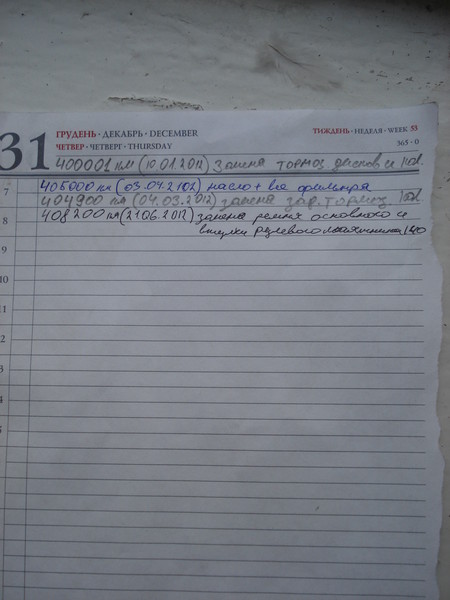 31
ГРУДЕНЬ · ДЕКАБРЬ · DECEMBER
ЧЕТВЕР · ЧЕТВЕРГ · THURSDAY
ТИЖДЕНЬ · НЕДЕЛЯ · WEEK 53
365 - 0
400001 км (10.01.2012) Замена тормоз дисков и кол.
7 405000 км (03.04.2102) масло + все фильтра
404900 км (04.03.2012) замена зад. тормоз кол.
8 408200 км (21.06.2012) замена ремня основного и
втулки рулевого
9
10
11
2
3
4
5